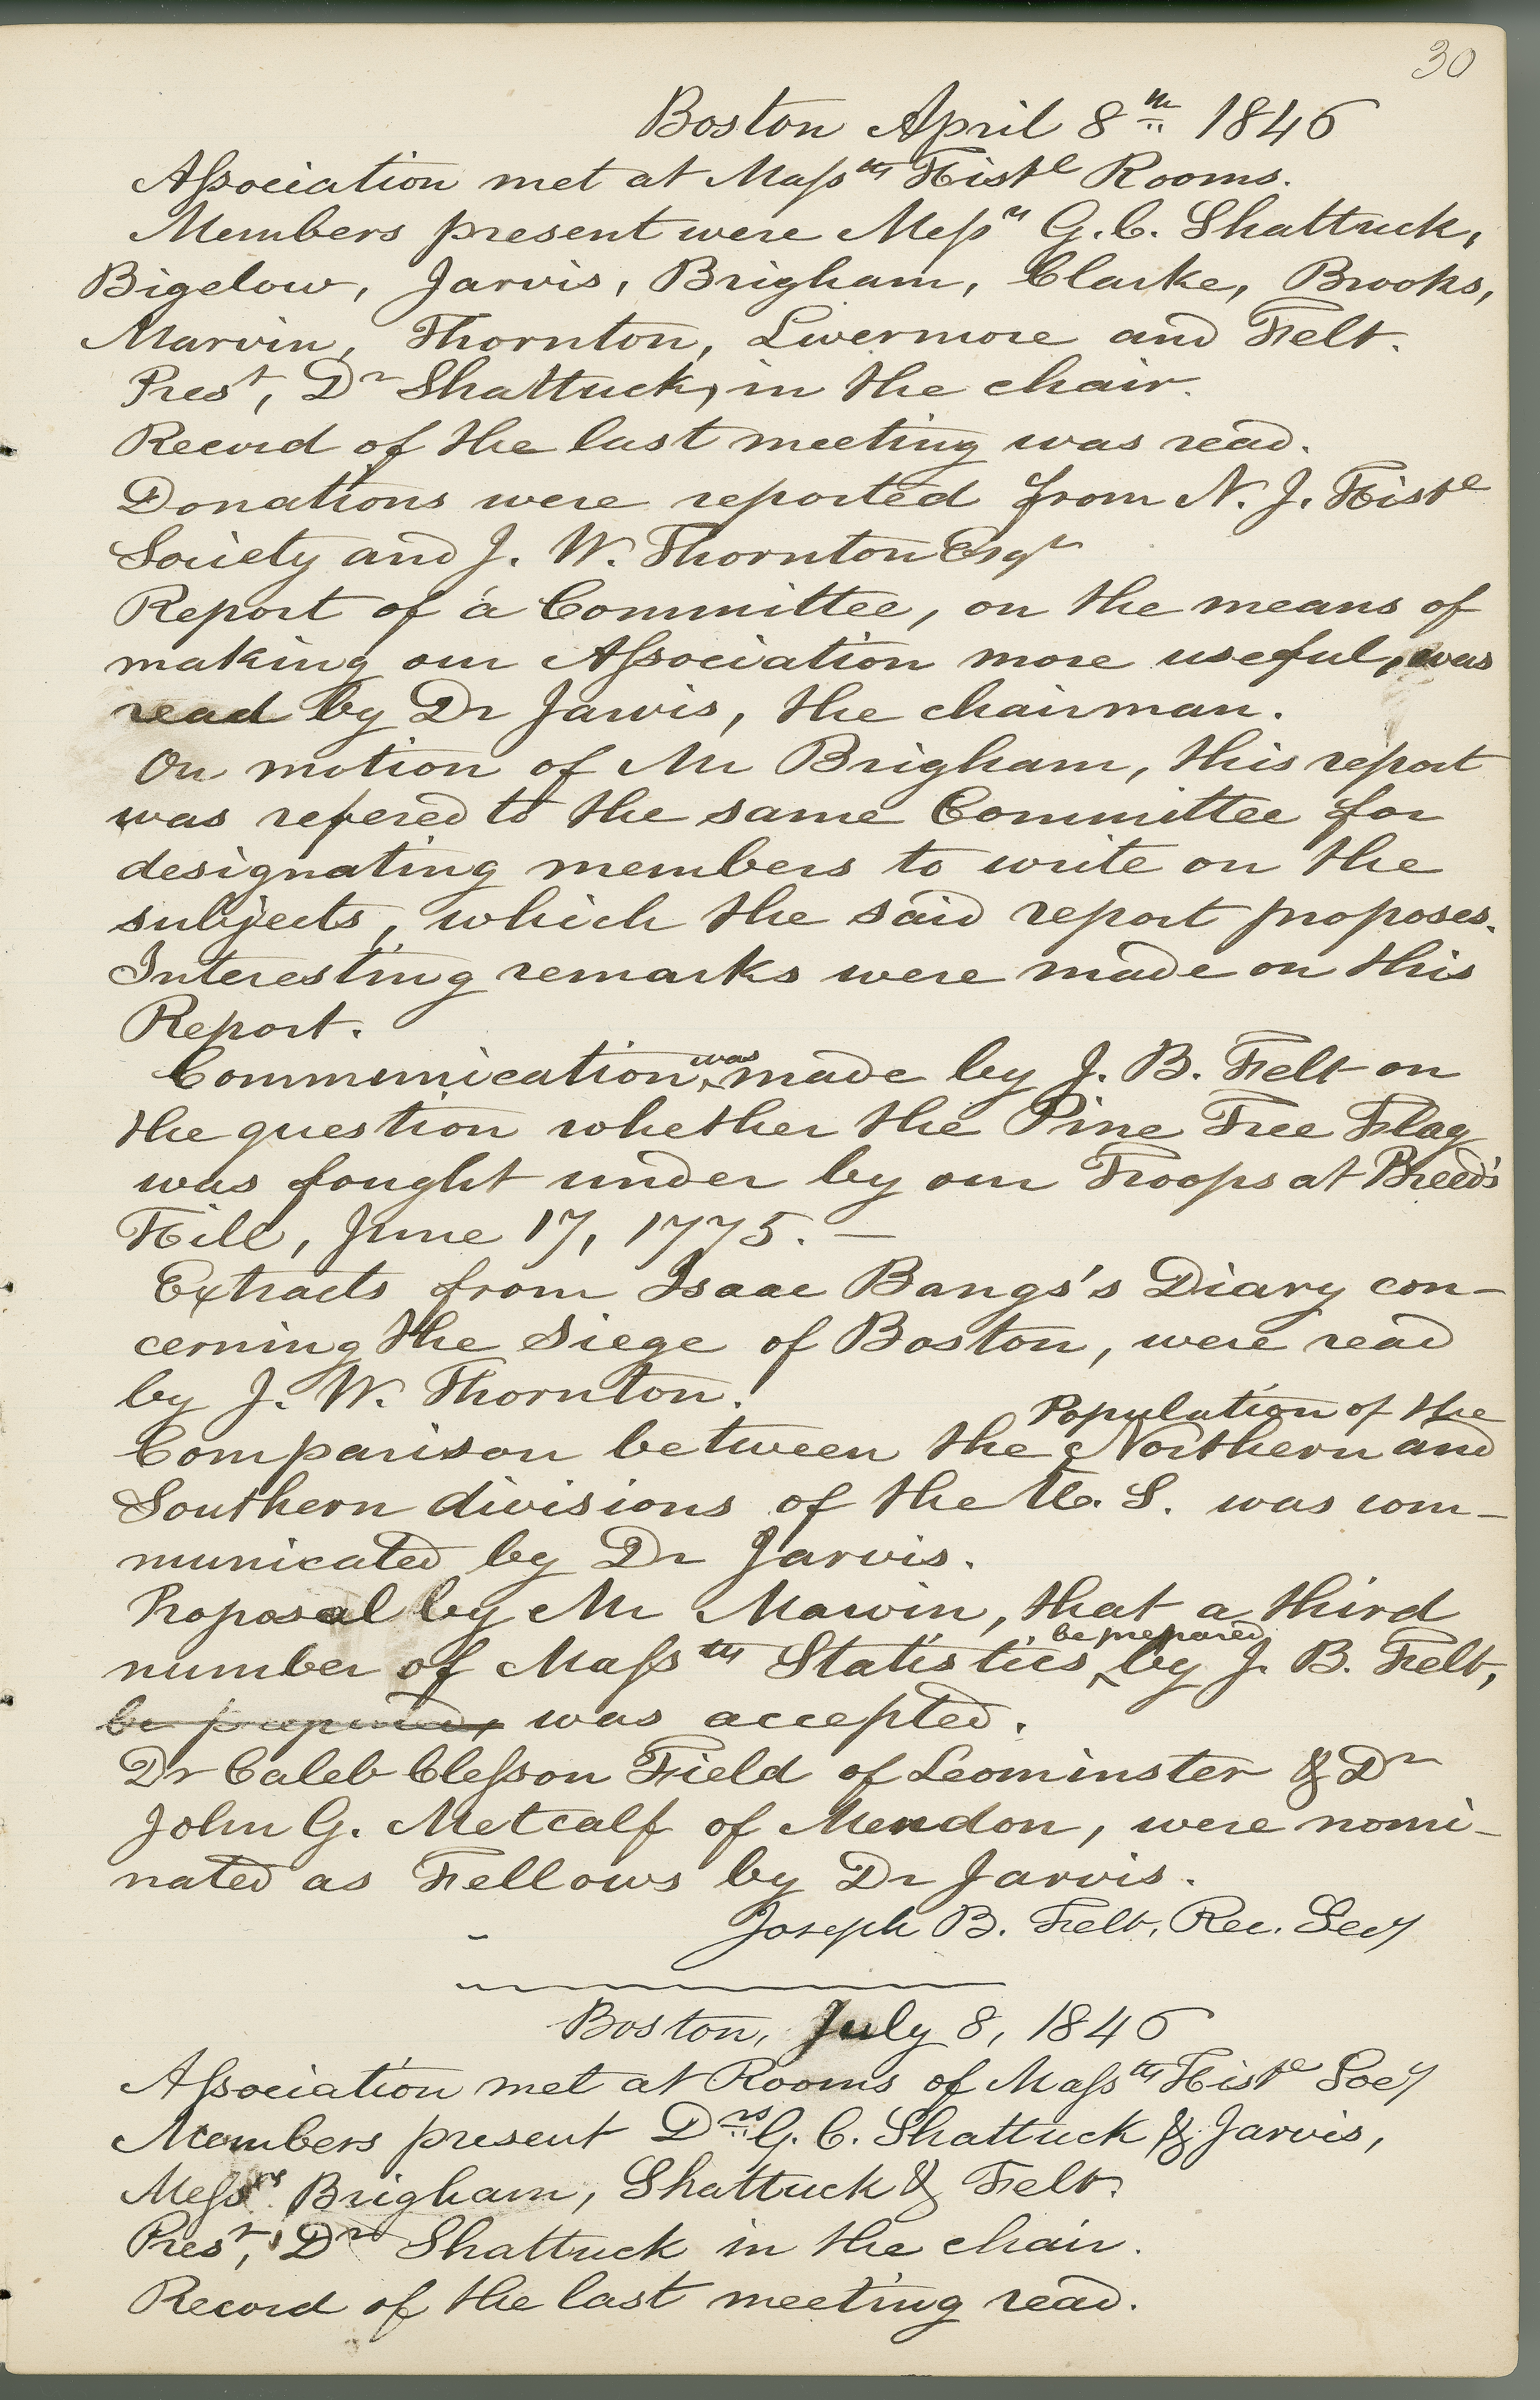 30
Boston April 8th 1846
Aſsociation met at Maſsts Histl Rooms.
Members present were Meſsrs G. C. Shattuck,
Bigelow, Jarvis, Brigham, Clarke, Brooks,
Marvin, Thornton, Livermore and Felt.
Prest, Dr Shattuck, in the chair.
Record of the last meeting was read.
Donations were reported from N. J. Histl
Society and J. W. Thornton Esqr
Report of a Committee, on the means of
making our Aſsociation more useful, was
read by Dr Jarvis, the chairman.
On motion of Mr Brigham, this report
was refered to the same Committee for
designating members to write on the
subjects, which the said report proposes.
Interesting remarks were made on this
Report.
Communication was made by J. B. Felt on
the question whether the Pine Tree Flag
was fought under by our Troops at Breed's
Hill, June 17, 1775. —
Extracts from Isaac Bangs's Diary con-
cerning the Siege of Boston, were read
by J. W. Thornton.
Comparison between the Population of the Northern and
Southern divisions of the U. S. was com-
municated by Dr Jarvis.
Proposal by Mr Marvin, that a third
number of Maſsts Statistics be prepared by J. B. Felt,
be prepared, was accepted.
Dr Caleb Cleſson Field of Leominster & Dr
John G. Metcalf of Mendon, were nomi-
nated as Fellows by Dr Jarvis.
Joseph B. Felt, Rec. Secy
Boston, July 8, 1846
Aſsociation met at Rooms of Maſsts Histl Socy
Members present Drs G. C. Shattuck & Jarvis,
Meſsrs Brigham, Shattuck & Felt.
Prest, Dr Shattuck in the chair.
Record of the last meeting read.